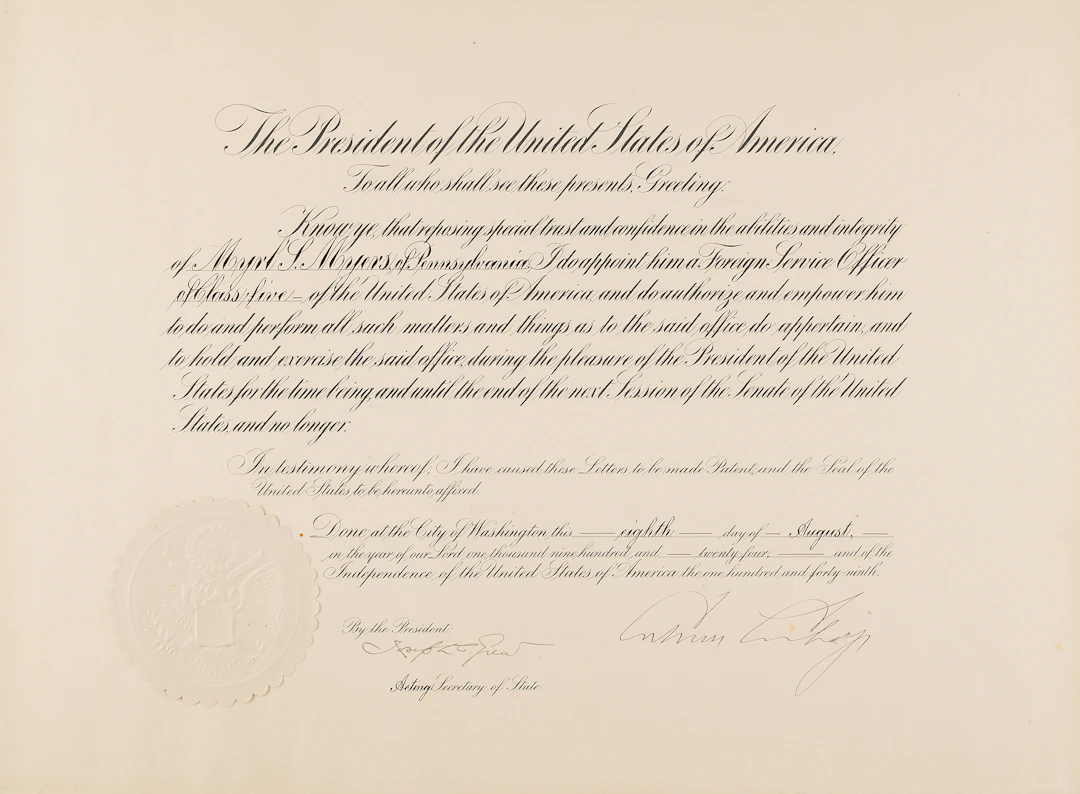 The President of the United States of America,
To all who shall see these presents, Greeting:
Know ye, that reposing special trust and confidence in the abilities and integrity
of Myrl S. Myers, of Pennsylvania, I do appoint him a Foreign Service Officer
of Class five – of the United States of America, and do authorize and empower him
to do and perform all such matters and things as to the said office do appertain, and
to hold and exercise the said office, during the pleasure of the President of the United
States for the time being, and until the end of the next Session of the Senate of the United
States, and no longer.
In testimony whereof, I have caused these Letters to be made Patent, and the Seal of the
United States, to be hereunto affixed.
Done at the City of Washington this — eighth — day of — August, —
in the year of our Lord one thousand nine hundred and — twenty-four, — and of the
Independence of the United States of America the one hundred and forty-ninth.
By the President:
Joseph C. Grew
Calvin Coolidge
Acting Secretary of State.